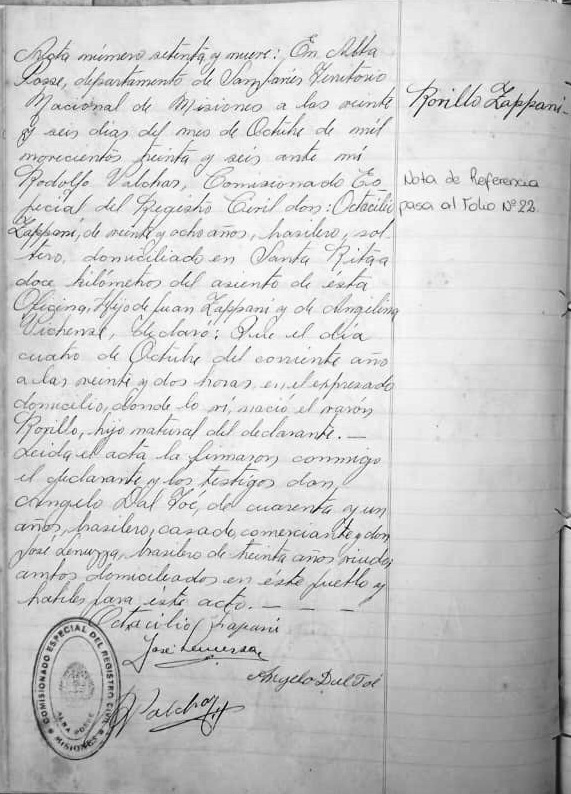 Acta número setenta y nueve: En Alba
Posse, departamento de San Javier Territorio
Nacional de Misiones a las veinte
y seis dias del mes de Octubre de mil
novecientos treinta y seis ante mi
Rodolfo Valchar, Comisionado Es
pecial del Registro Civil don: Octacilio
Zappani, de veinte y ocho años, brasilero, sol-
tero, domiciliado en Santa Rita a
doce kilómetros del asiento de ésta
Oficina, Hijo de Juan Zappani y de Angelina
declaró: Que el día
cuatro de Octubre del corriente año
a las veinte y dos horas en el expresado
domicilio, donde lo ví, nació el varón
hijo natural del declarante.—
Leida el acta la firmaron conmigo
el declarante y los testigos don
Angelo Dal Foé, de cuarenta y un
años, brasilero, casado, comerciante y don
José brasilero de treinta años viudo,
ambos domiciliados en este pueblo y
habiles para éste acto. — — — —
Octacilio Zapani
José
Angelo Dal Foé
COMISIONADO ESPECIAL DEL REGISTRO CIVIL
ALBA POSSE
MISIONES
Zappani-
Nota de Referencia
pasa al Folio Nº 22.